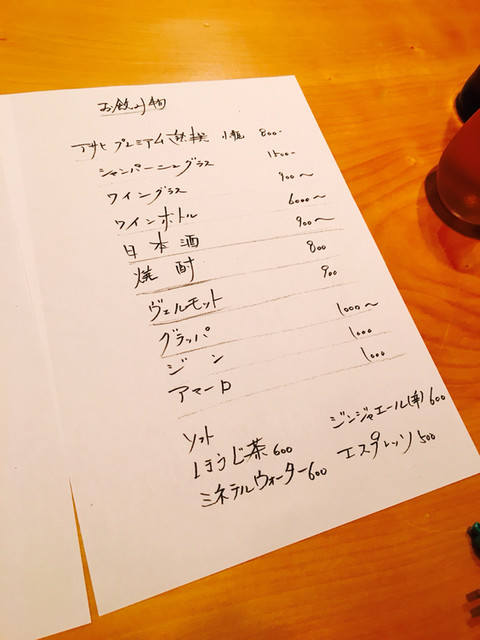 お飲み物
アサヒプレミアム熟撰 小瓶 800-
シャンパーニュグラス 1500-
ワイングラス 900〜
ワインボトル 6000〜
日本酒 900〜
焼酎 800
ヴェルモット 900
グラッパ 1000〜
ジン 1000
アマーロ 1000
ソフト
ほうじ茶 600
ミネラルウォーター 600
ジンジャエール(辛) 600
エスプレッソ 500